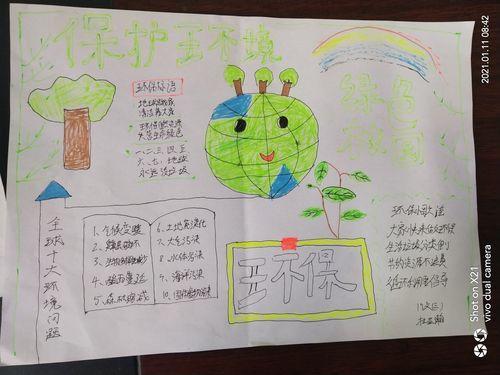 保护环境
绿色
家园
环保标语
一、二、三、四、五
六、七、地球
永远没垃圾
全球十大环境问题
1、气候变暖
2、臭氧层破坏
3、生物多样性减少
4、酸雨蔓延
5、森林锐减
6、土地荒漠化
7、大气污染
8、水体污染
9、海洋污染
10、固体废物污染
环保
环保小歌谣
大家快来做环保
生活垃圾分类别
节约资源不浪费
循环利用要倡导
2021.01.11 08:42
Shot on X21
vivo dual camera